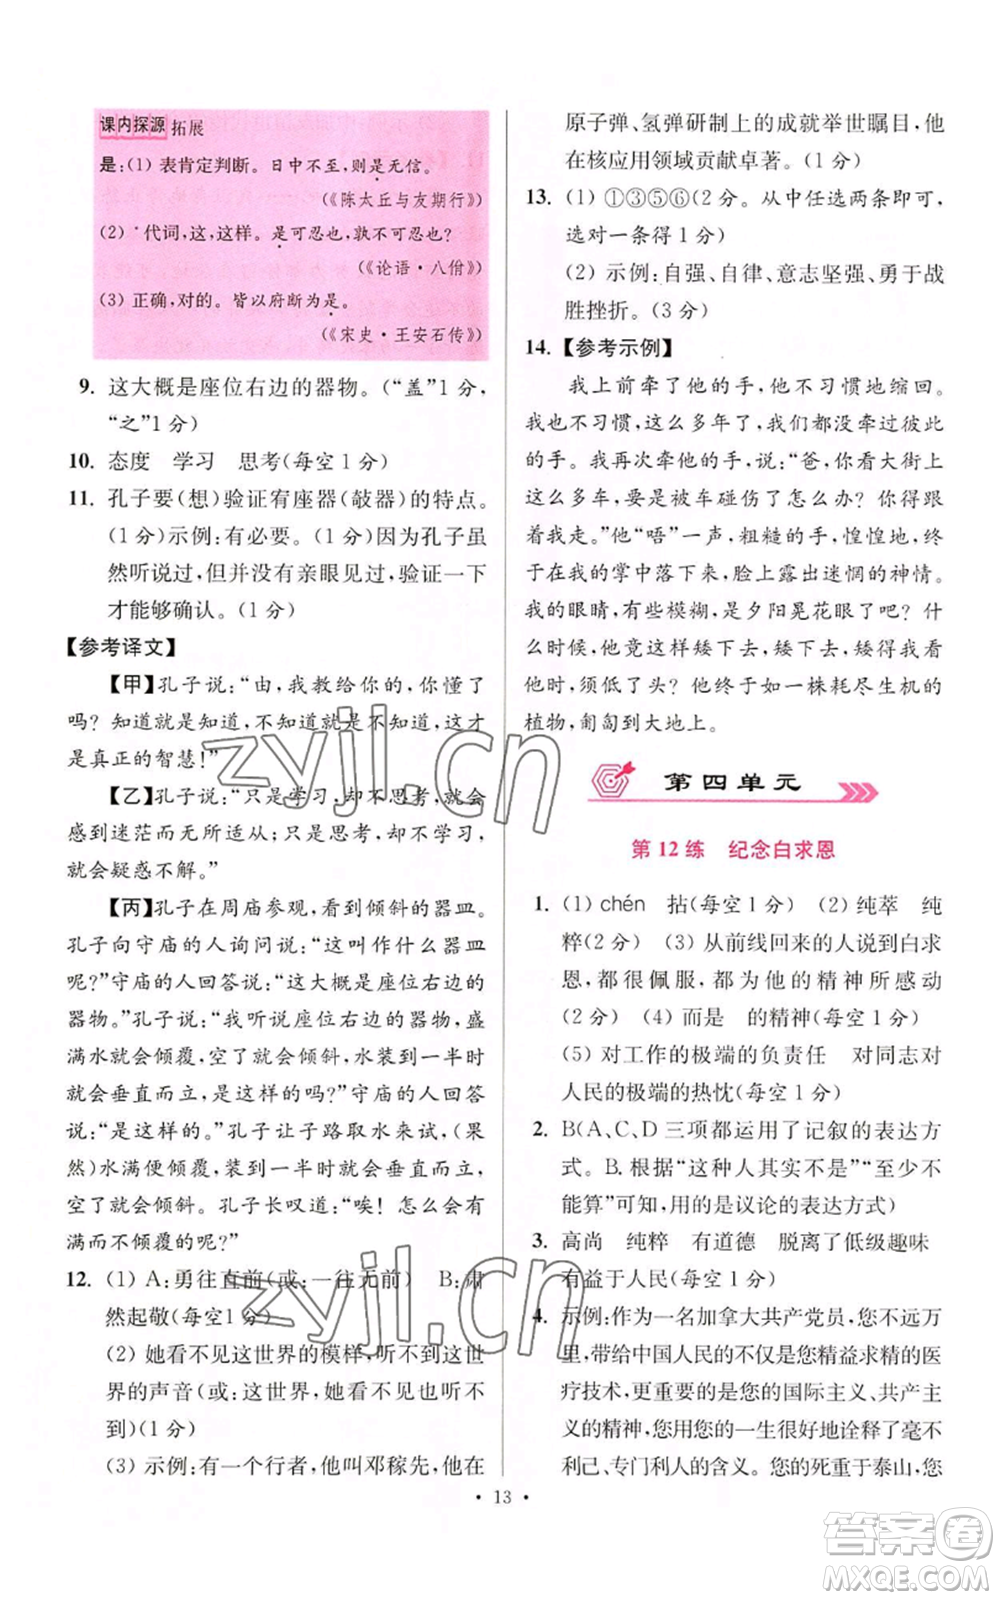 课内探源 拓展
是:(1) 表肯定判断。日中不至,则是无信。
(《陈太丘与友期行》)
(2) 代词,这,这样。是可忍也,孰不可忍也?
(《论语·八佾》)
(3) 正确,对的。皆以府断为是。
(《宋史·王安石传》)
9. 这大概是座位右边的器物。(“盖”1分,
“之”1分)
10. 态度 学习 思考(每空1分)
11. 孔子要(想)验证有座器(敧器)的特点。
(1分)示例:有必要。(1分)因为孔子虽
然听说过,但并没有亲眼见过,验证一下
才能够确认。(1分)
【参考译文】
【甲】孔子说:“由,我教给你的,你懂了
吗?知道就是知道,不知道就是不知道,这才
是真正的智慧!”
【乙】孔子说:“只是学习,却不思考,就会
感到迷茫而无所适从;只是思考,却不学习,
就会疑惑不解。”
【丙】孔子在周庙参观,看到倾斜的器皿。
孔子向守庙的人询问说:“这叫作什么器皿
呢?”守庙的人回答说:“这大概是座位右边的
器物。”孔子说:“我听说座位右边的器物,盛
满水就会倾覆,空了就会倾斜,水装到一半时
就会垂直而立,是这样的吗?”守庙的人回答
说:“是这样的。”孔子让子路取水来试,(果
然)水满便倾覆,装到一半时就会垂直而立,
空了就会倾斜。孔子长叹道:“唉!怎么会有
满而不倾覆的呢?”
12. (1) A:勇往直前(或:一往无前) B:肃
然起敬(每空1分)
(2) 她看不见这世界的模样,听不到这世
界的声音(或:这世界,她看不见也听不
到)(1分)
(3) 示例:有一个行者,他叫邓稼先,他在
原子弹、氢弹研制上的成就举世瞩目,他
在核应用领域贡献卓著。(1分)
13. (1) ①③⑤⑥(2分。从中任选两条即可,
选对一条得1分)
(2) 示例:自强、自律、意志坚强、勇于战
胜挫折。(3分)
14. 【参考示例】
我上前牵了他的手,他不习惯地缩回。
我也不习惯,这么多年了,我们都没牵过彼此
的手。我再次牵了他的手,说:“爸,你看大街上
这么多车,要是被车碰伤了怎么办?你得跟
着我走。”他“唔”一声,粗糙的手,惶惶地,终
于在我的掌中落下来,脸上露出迷惘的神情。
我的眼睛,有些模糊,是夕阳晃花眼了吧?什
么时候,他竟这样矮下去,矮下去,我看着
他时,须低了头?他终于如一株耗尽生机的
植物,匍匐到大地上。
第四单元
第12练 纪念白求恩
1. (1) chén 拈(每空1分) (2) 纯萃 纯
粹(2分) (3) 从前线回来的人说到白求
恩,都很佩服,都为他的精神所感动
(2分) (4) 而是 的精神(每空1分)
(5) 对工作的极端的负责任 对同志对
人民的极端的热忱(每空1分)
2. B(A、C、D三项都运用了记叙的表达方
式。B.根据“这种人其实不是”“至少不
能算”可知,用的是议论的表达方式)
3. 高尚 纯粹 有道德 脱离了低级趣味
有益于人民(每空1分)
4. 示例:作为一名加拿大共产党员,您不远万
里,带给中国人民的不仅是您精益求精的医
疗技术,更重要的是您的国际主义、共产主
义的精神,您用您的一生很好地诠释了毫不
利己、专门利人的含义。您的死重于泰山,您
· 13 ·
zyjl.cn
zyjl.cn
答案圈
MXQE.COM